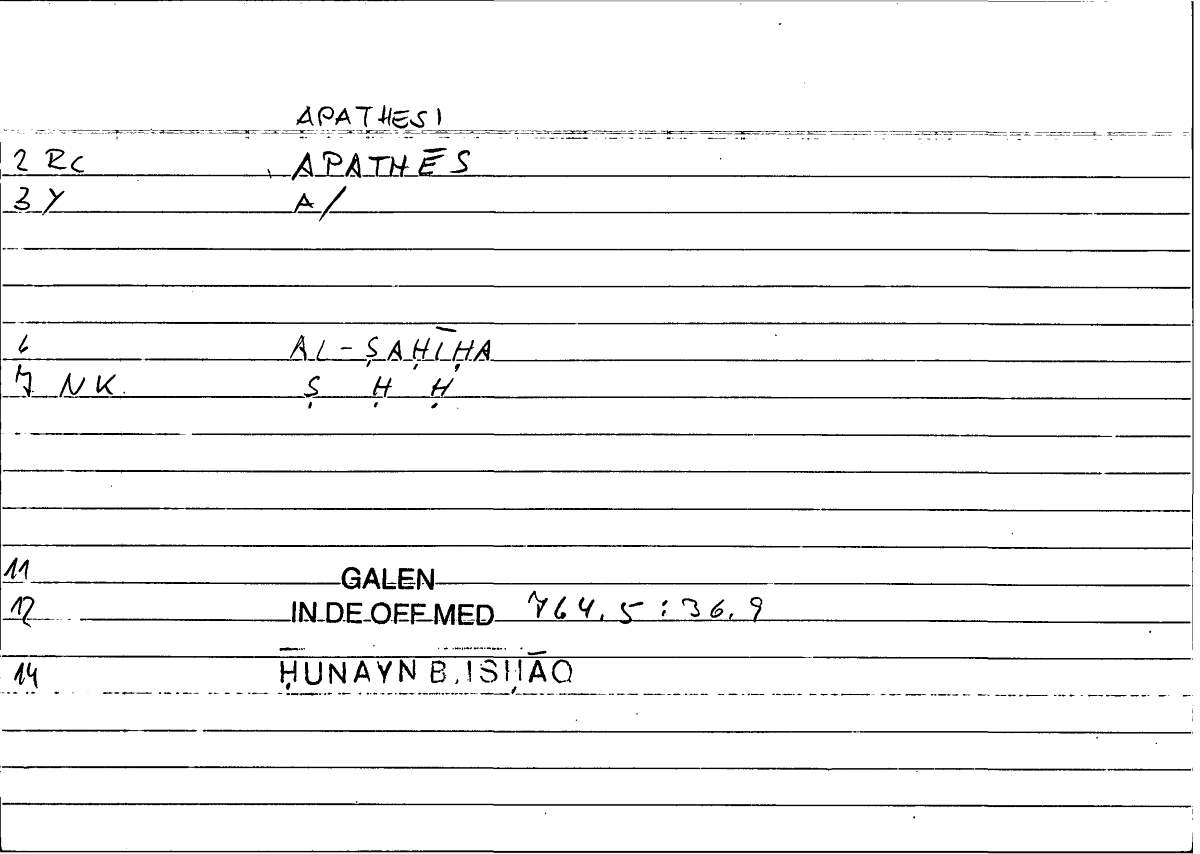 APATHESI
2 RC APATHĒS
3 Y A/
6 AL-ṢAḤĪḤA
7 NK. Ṣ Ḥ Ḥ
11 GALEN
12 IN DE OFF MED 764.5 : 36.9
14 ḤUNAYN B. ISḤĀQ